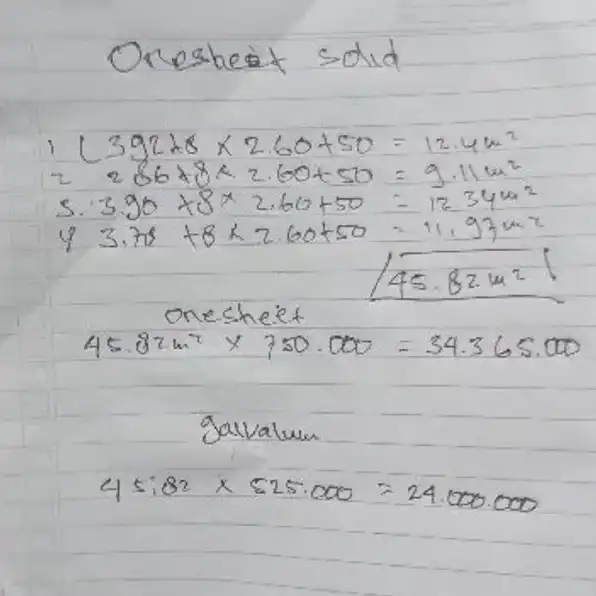 Onesheet solid
1 ( 392+8 × 2.60+50 = 12.4m²
2 286+8 × 2.60+50 = 9.11m²
3. 3.90 +8 × 2.60+50 = 12 34m²
4 3.78 +8 × 2.60+50 = 11,97m²
45.82m²
onesheet
45.82m² × 750.000 = 34.365.000
galvalum
45,82 × 525.000 = 24.000.000